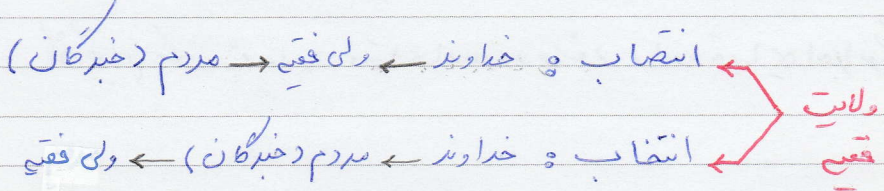 ولایت
فقیه
انتصاب : خداوند ← ولی فقیه → مردم (خبرگان)
انتخاب : خداوند ← مردم (خبرگان) ← ولی فقیه